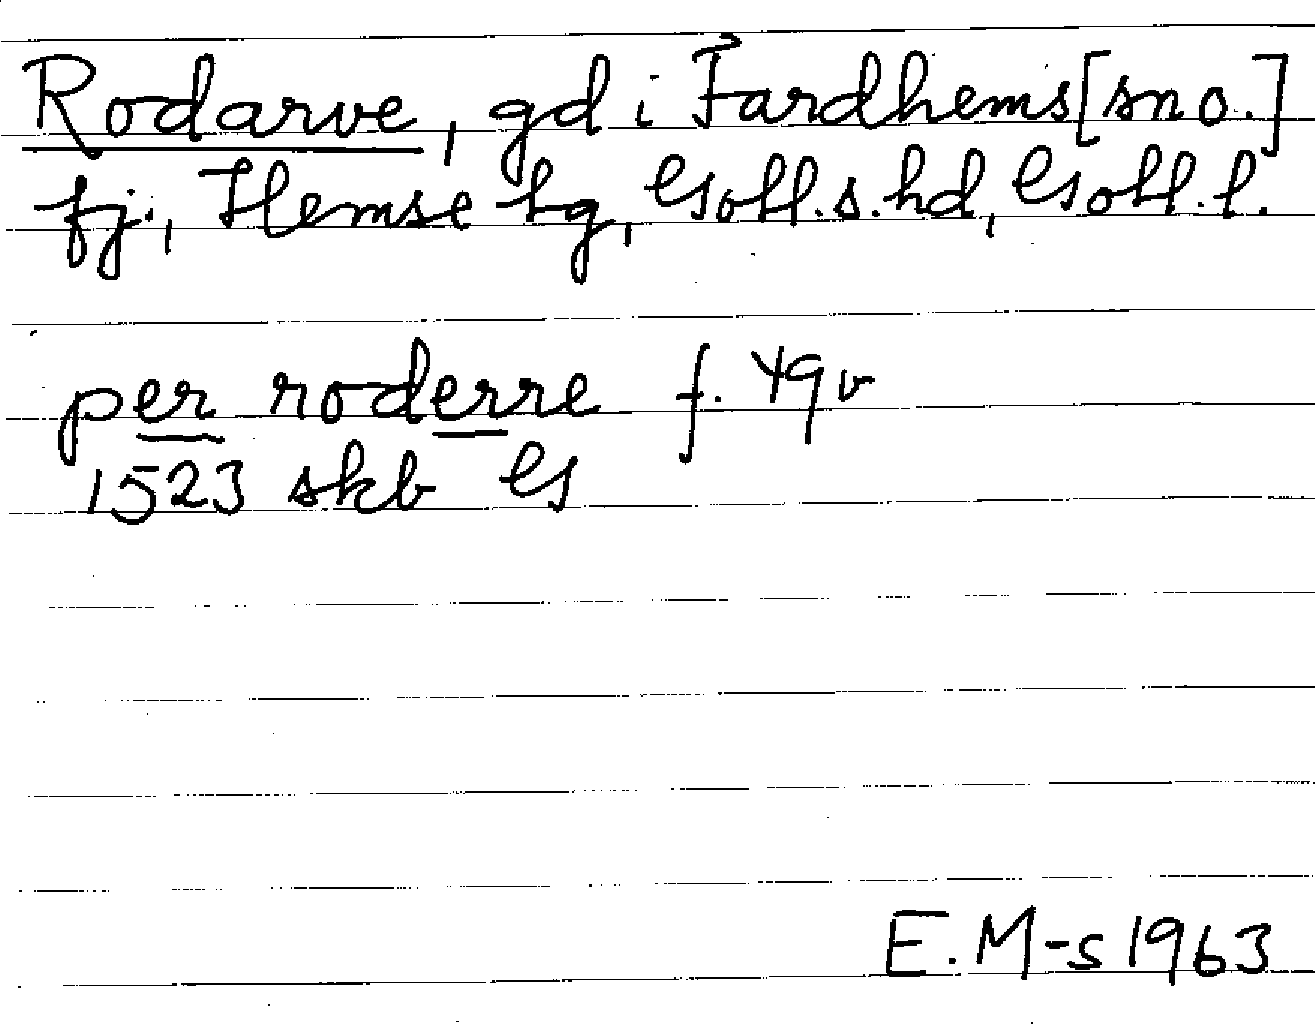 Rodarve, gd i Fardhems [sn o.]
fj., Hemse tg, Gotl.s.hd, Gotl.l.
per roderre f. 49v
1523 skb G
E.M-s 1963